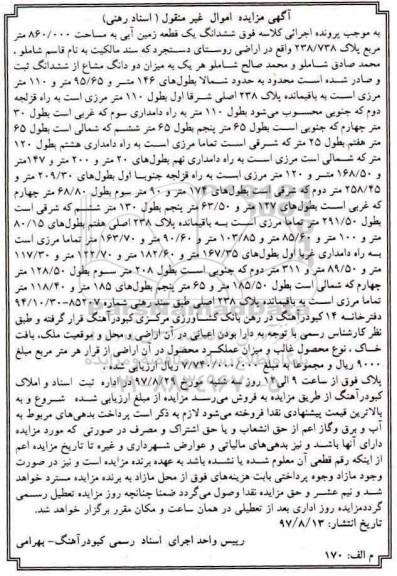 آگهی مزایده اموال غیر منقول ( اسناد رهنی)
به موجب پرونده اجرائی کلاسه فوق ششدانگ یک قطعه زمین آبی به مساحت ۸۶۰/۰۰۰ متر
مربع پلاک ۲۳۸/۷۳۸ واقع در اراضی روستای دستجرد که سند مالکیت به نام قاسم شاملو ،
محمد صادق شاملو و محمد صالح شاملو هر یک به میزان دو دانگ مشاع از ششدانگ ثبت
و صادر شده است محدود به حدود شمالا بطول‌های ۱۴۶ متر و ۹۵/۶۵ متر و ۱۱۰ متر
مرزی است به باقیمانده پلاک ۲۳۸ اصلی شرقا اول بطول ۱۱۰ متر مرزی است به راه قزلجه
دوم که جنوبی محسوب می‌شود بطول ۱۱۰ متر به راه دامداری سوم که غربی است بطول ۳۰
متر چهارم که جنوبی است بطول ۶۵ متر پنجم بطول ۶۵ متر ششم که شمالی است بطول ۶۵
متر هفتم بطول ۲۵ متر که شرقی است تماما مرزی است به راه دامداری هشتم بطول ۱۲۰
متر که شمالی است مرزی است به راه دامداری نهم بطول‌های ۲۰ متر و ۲۰۰ متر و ۱۴۷متر
و ۱۶۸/۵۰ متر و ۱۲۰ متر مرزی است به راه قزلجه جنوبا اول بطول‌های ۲۰۹/۳۰ متر و
۲۵۸/۴۵ متر دوم که شرقی است بطول‌های ۱۷۴ متر و ۹۰ متر سوم بطول ۶۸/۸۰ متر چهارم
که غربی است بطول‌های ۱۲۷ متر و ۶۳/۵۰ متر پنجم بطول ۱۳۰ متر ششم که شرقی است
بطول ۲۹۱/۵۰ متر تماما مرزی است به باقیمانده پلاک ۲۳۸ اصلی هفتم بطول‌های ۸۰/۱۵
متر و ۱۰۰ متر و ۸۵/۶۰ متر و ۱۰۳/۸۵ متر و ۹۰/۶۰ متر و ۱۶۳/۷۰ متر تماما مرزی است
به راه دامداری غربا اول بطول‌های ۱۶۷/۳۵ متر و ۱۸۲/۶۰ متر و ۱۲۲/۷۰ متر و ۱۱۷/۳۰
متر و ۸۹/۵۰ متر و ۳۱۱ متر دوم که جنوبی است بطول ۲۰۸ متر سوم بطول ۱۲۸/۵۰ متر
چهارم که شمالی است بطول ۱۸۵/۵۰ متر و ۶۵ متر پنجم بطول‌های ۱۸۵ متر و ۱۱۸/۴۰ متر
تماما مرزی است به باقیمانده پلاک ۲۳۸ اصلی طبق سند رهنی شماره ۸۵۲۰۷-۹۴/۱۰/۳۰
دفترخانه ۱۴ کبودرآهنگ در رهن بانک کشاورزی مرکزی کبودرآهنگ قرار گرفته و طبق
نظر کارشناس رسمی با توجه به دارا بودن اعیانی در آن اراضی و محل و موقعیت ملک ، بافت
خاک ، نوع محصول غالب و میزان عملکرد محصول در آن اراضی از قرار هر متر مربع مبلغ
۹۰۰۰ ریال و مجموعا به مبلغ ۷/۷۴۰/۰۰۰/۰۰۰ ریال ارزیابی شده .
پلاک فوق از ساعت ۹ الی ۱۲ روز سه شنبه مورخ ۹۷/۸/۲۹ در اداره ثبت اسناد و املاک
کبودرآهنگ از طریق مزایده به فروش می‌رسد مزایده از مبلغ ارزیابی شده شروع و به
بالاترین قیمت پیشنهادی نقدا فروخته می‌شود لازم به ذکر است پرداخت بدهی‌های مربوط به
آب و برق وگاز اعم از حق انشعاب و یا حق اشتراک و مصرف در صورتی که مورد مزایده
دارای آنها باشد و نیز بدهی‌های مالیاتی و عوارض شهرداری و غیره تا تاریخ مزایده اعم
از اینکه رقم قطعی آن معلوم شده یا نشده باشد به عهده برنده مزایده است و نیز در صورت
وجود مازاد وجوه پرداختی بابت هزینه‌های فوق از محل مازاد به برنده مزایده مسترد خواهد
شد و نیم عشر و حق مزایده نقدا وصول می‌گردد ضمنا چنانچه روز مزایده تعطیل رسمی
گرددمزایده روز اداری بعد از تعطیلی در همان ساعت و مکان مقرر برگزار خواهد شد.
تاریخ انتشار: ۹۷/۸/۱۳
رییس واحد اجرای اسناد رسمی کبودرآهنگ- بهرامی
م الف: ۱۷۰